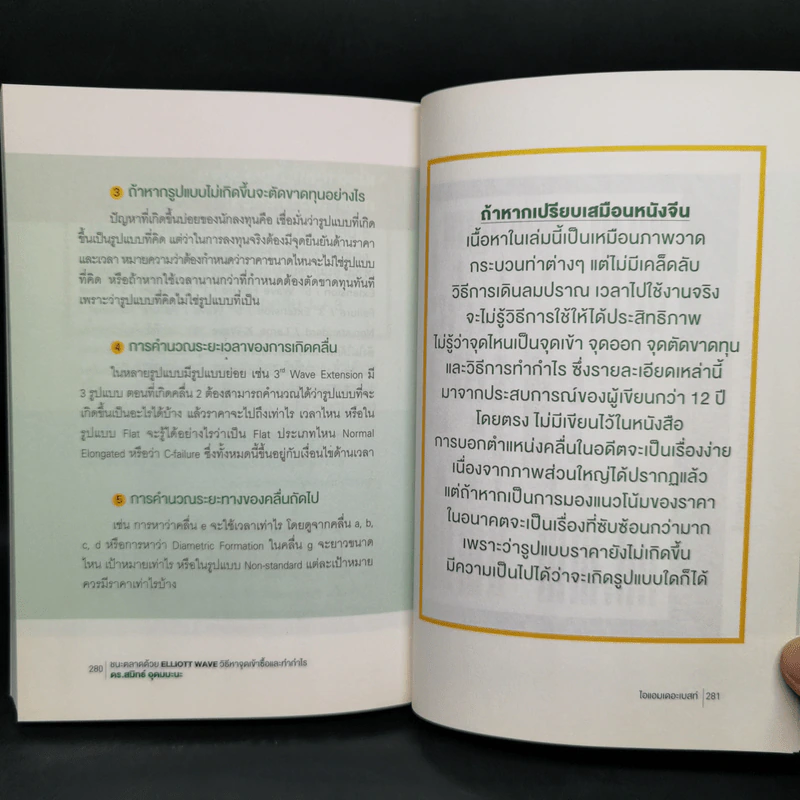 3 ถ้าหากรูปแบบไม่เกิดขึ้นจะตัดขาดทุนอย่างไร
ปัญหาที่เกิดขึ้นบ่อยของนักลงทุนคือ เชื่อมั่นว่ารูปแบบที่เกิด
ขึ้นเป็นรูปแบบที่คิด แต่ว่าในการลงทุนจริงต้องมีจุดยืนยันด้านราคา
และเวลา หมายความว่าต้องกำหนดว่าราคาขนาดไหนจะไม่ใช่รูปแบบ
ที่คิด หรือถ้าหากใช้เวลานานกว่าที่กำหนดต้องตัดขาดทุนทันที
เพราะว่ารูปแบบที่คิดไม่ใช่รูปแบบที่เป็น
4 การคำนวณระยะเวลาของการเกิดคลื่น
ในหลายรูปแบบมีรูปแบบย่อย เช่น 3rd Wave Extension มี
3 รูปแบบ ตอนที่เกิดคลื่น 2 ต้องสามารถคำนวณได้ว่ารูปแบบที่จะ
เกิดขึ้นเป็นอะไรได้บ้าง แล้วราคาจะไปถึงเท่าไร เวลาไหน หรือใน
รูปแบบ Flat จะรู้ได้อย่างไรว่าเป็น Flat ประเภทไหน Normal
Elongated หรือว่า C-failure ซึ่งทั้งหมดนี้ขึ้นอยู่กับเงื่อนไขด้านเวลา
5 การคำนวณระยะทางของคลื่นถัดไป
เช่น การหาว่าคลื่น e จะใช้เวลาเท่าไร โดยดูจากคลื่น a, b,
c, d หรือการหาว่า Diametric Formation ในคลื่น g จะยาวขนาด
ไหน เป้าหมายเท่าไร หรือในรูปแบบ Non-standard แต่ละเป้าหมาย
ควรมีราคาเท่าไรบ้าง
280 ชนะตลาดด้วย ELLIOTT WAVE วิธีหาจุดเข้าซื้อและทำกำไร
ดร.สมิทธ์ อุดมมะนะ
ถ้าหากเปรียบเสมือนหนังจีน
เนื้อหาในเล่มนี้เป็นเหมือนภาพวาด
กระบวนท่าต่างๆ แต่ไม่มีเคล็ดลับ
วิธีการเดินลมปราณ เวลาไปใช้งานจริง
จะไม่รู้วิธีการใช้ให้ได้ประสิทธิภาพ
ไม่รู้ว่าจุดไหนเป็นจุดเข้า จุดออก จุดตัดขาดทุน
และวิธีการทำกำไร ซึ่งรายละเอียดเหล่านี้
มาจากประสบการณ์ของผู้เขียนกว่า 12 ปี
โดยตรง ไม่มีเขียนไว้ในหนังสือ
การบอกตำแหน่งคลื่นในอดีตจะเป็นเรื่องง่าย
เนื่องจากภาพส่วนใหญ่ได้ปรากฏแล้ว
แต่ถ้าหากเป็นการมองแนวโน้มของราคา
ในอนาคตจะเป็นเรื่องที่ซับซ้อนกว่ามาก
เพราะว่ารูปแบบราคายังไม่เกิดขึ้น
มีความเป็นไปได้ว่าจะเกิดรูปแบบใดก็ได้
ไอแอมเดอะเบสท์ 281